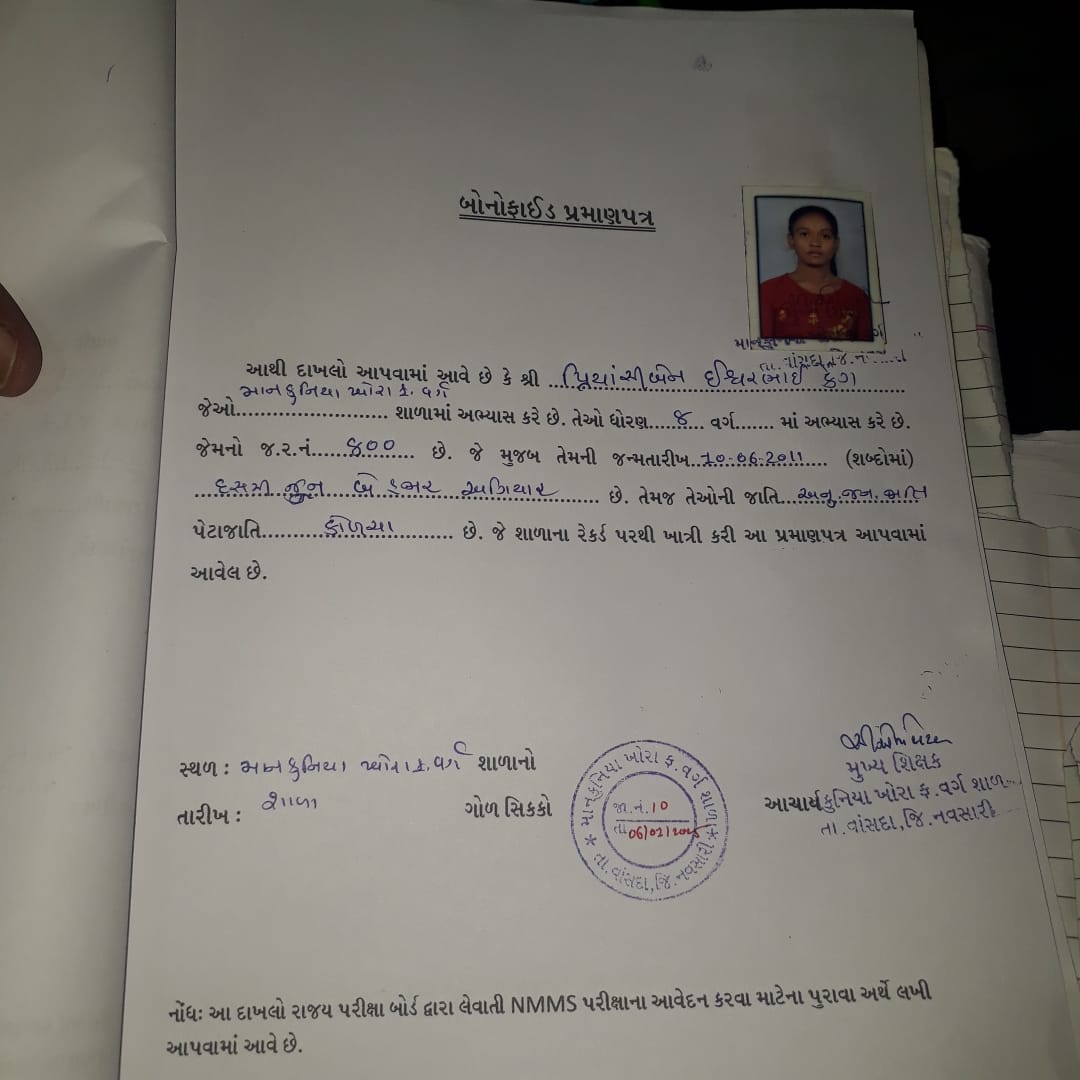 બોનોફાઈડ પ્રમાણપત્ર
આથી દાખલો આપવામાં આવે છે કે શ્રી ..પ્રિયાંસીબેન ઈશ્વરભાઈ
માનકુનિયા ખોરા ફ. વર્ગ
જેઓ....................... શાળામાં અભ્યાસ કરે છે. તેઓ ધોરણ....૮... વર્ગ....... માં અભ્યાસ કરે છે.
જેમનો જ.ર.નં.....૪૦૦.... છે. જે મુજબ તેમની જન્મતારીખ..10.06.2011.... (શબ્દોમાં)
...દસમી જૂન બે હજાર અગિયાર...... છે. તેમજ તેઓની જાતિ...અનુ.જન.જાતિ
પેટાજાતિ.................... છે. જે શાળાના રેકર્ડ પરથી ખાત્રી કરી આ પ્રમાણપત્ર આપવામાં
આવેલ છે.
સ્થળ : માનકુનિયા ખોરા ફ. વર્ગ શાળાનો
શાળા
તારીખ :
ગોળ સિક્કો
માનકુનિયા ખોરા ફ. વર્ગ શાળા
જા.નં.10
તા.06/02/2025
તા. વાંસદા, જિ. નવસારી
મુખ્ય શિક્ષક
આચાર્ય કુનિયા ખોરા ફ. વર્ગ શાળ
તા. વાંસદા, જિ. નવસારી
નોંધઃ આ દાખલો રાજય પરીક્ષા બોર્ડ દ્વારા લેવાતી NMMS પરીક્ષાના આવેદન કરવા માટેના પુરાવા અર્થે લખી
આપવામાં આવે છે.